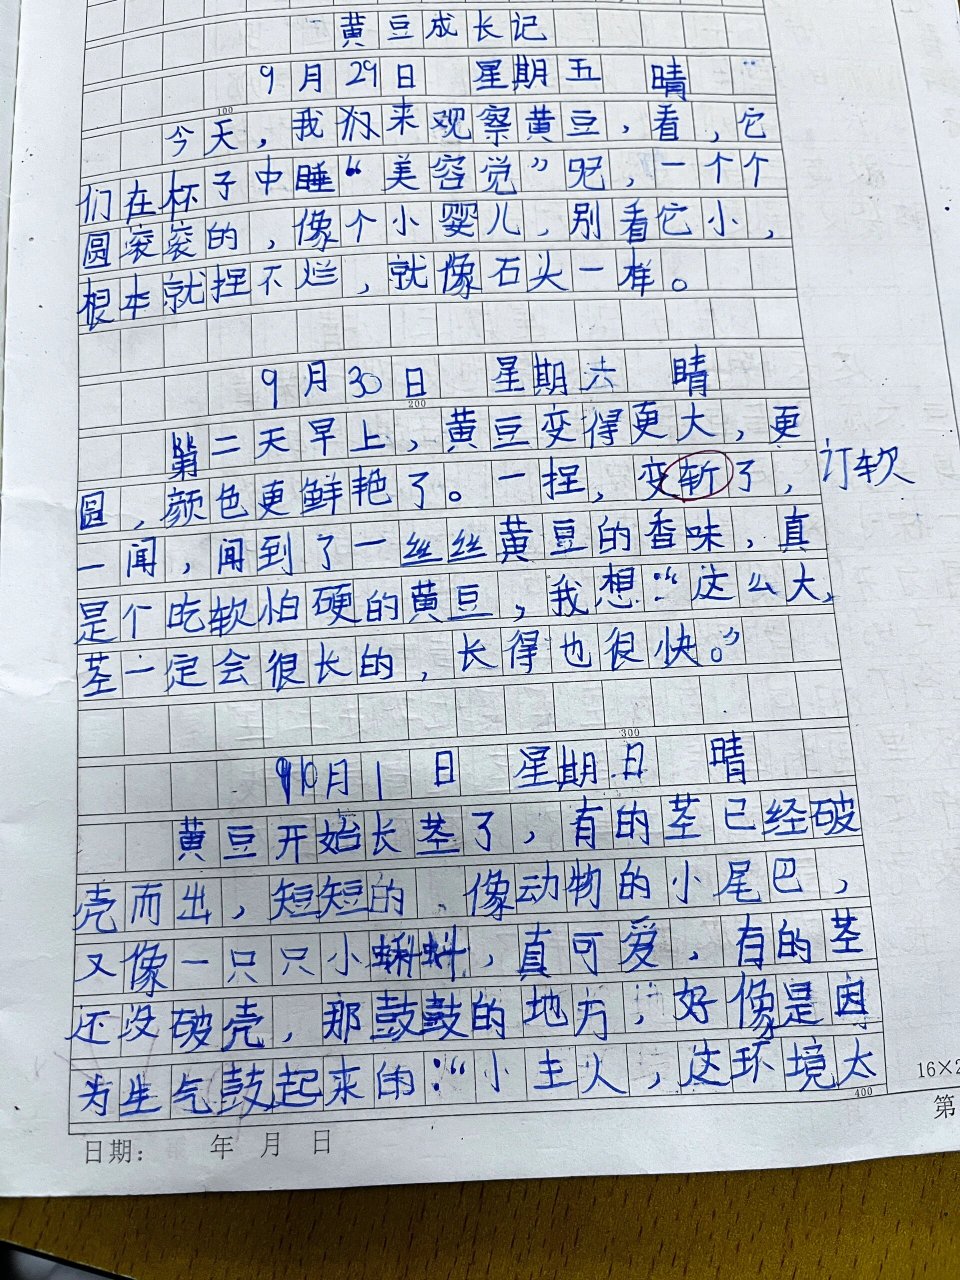 黄豆成长记
9月29日 星期五 晴
今天，我们来观察黄豆，看，它
们在杯子中睡“美容觉”呢，一个个
圆滚滚的，像个小婴儿，别看它小，
根本就捏不烂，就像石头一样。
9月30日 星期六 晴
第二天早上，黄豆变得更大，更
圆，颜色更鲜艳了。一捏，变斩了，订软
一闻，闻到了一丝丝黄豆的香味，真
是个吃软怕硬的黄豆，我想：“这么大，
茎一定会很长的，长得也很快。”
10月1日 星期日 晴
黄豆开始长茎了，有的茎已经破
壳而出，短短的、像动物的小尾巴，
又像一只只小蝌蚪，真可爱，有的茎
还没破壳，那鼓鼓的地方，好像是因
为生气鼓起来的：“小主人，这环境太
400
16×2
第
日期： 年 月 日
100
200
300